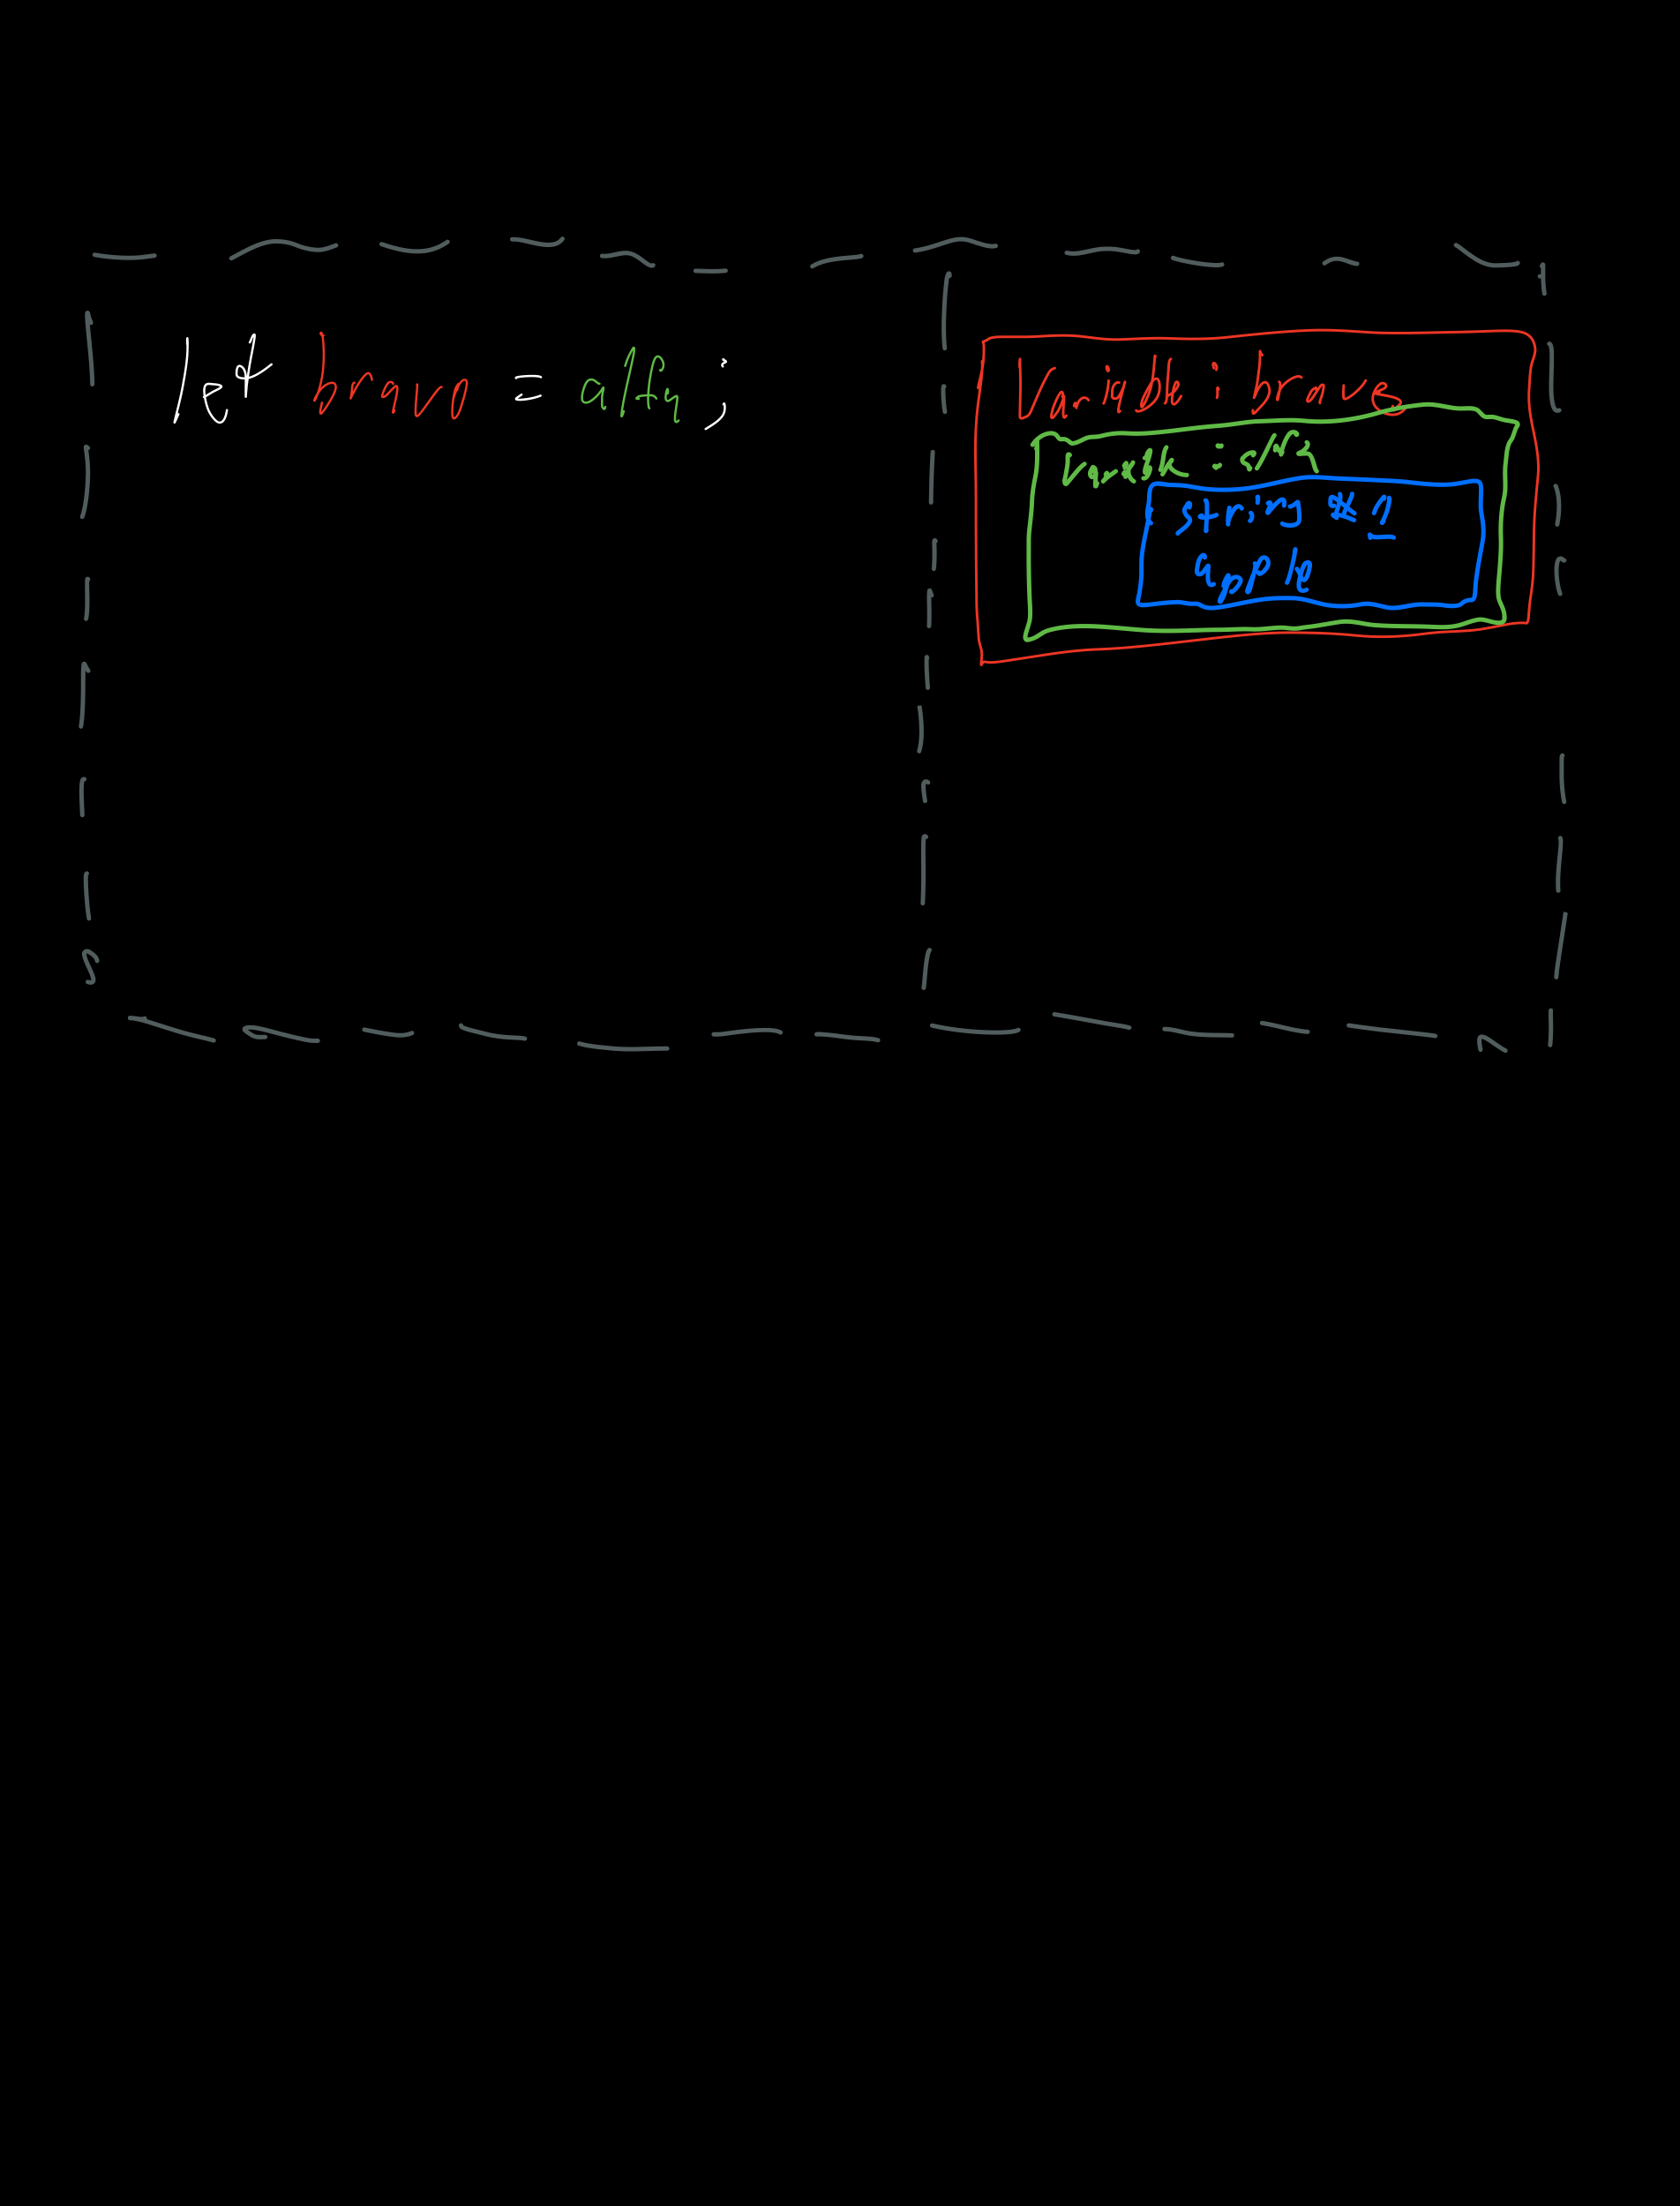 let bravo = alfa;
Variable : brave
Variable :
string #1
apple